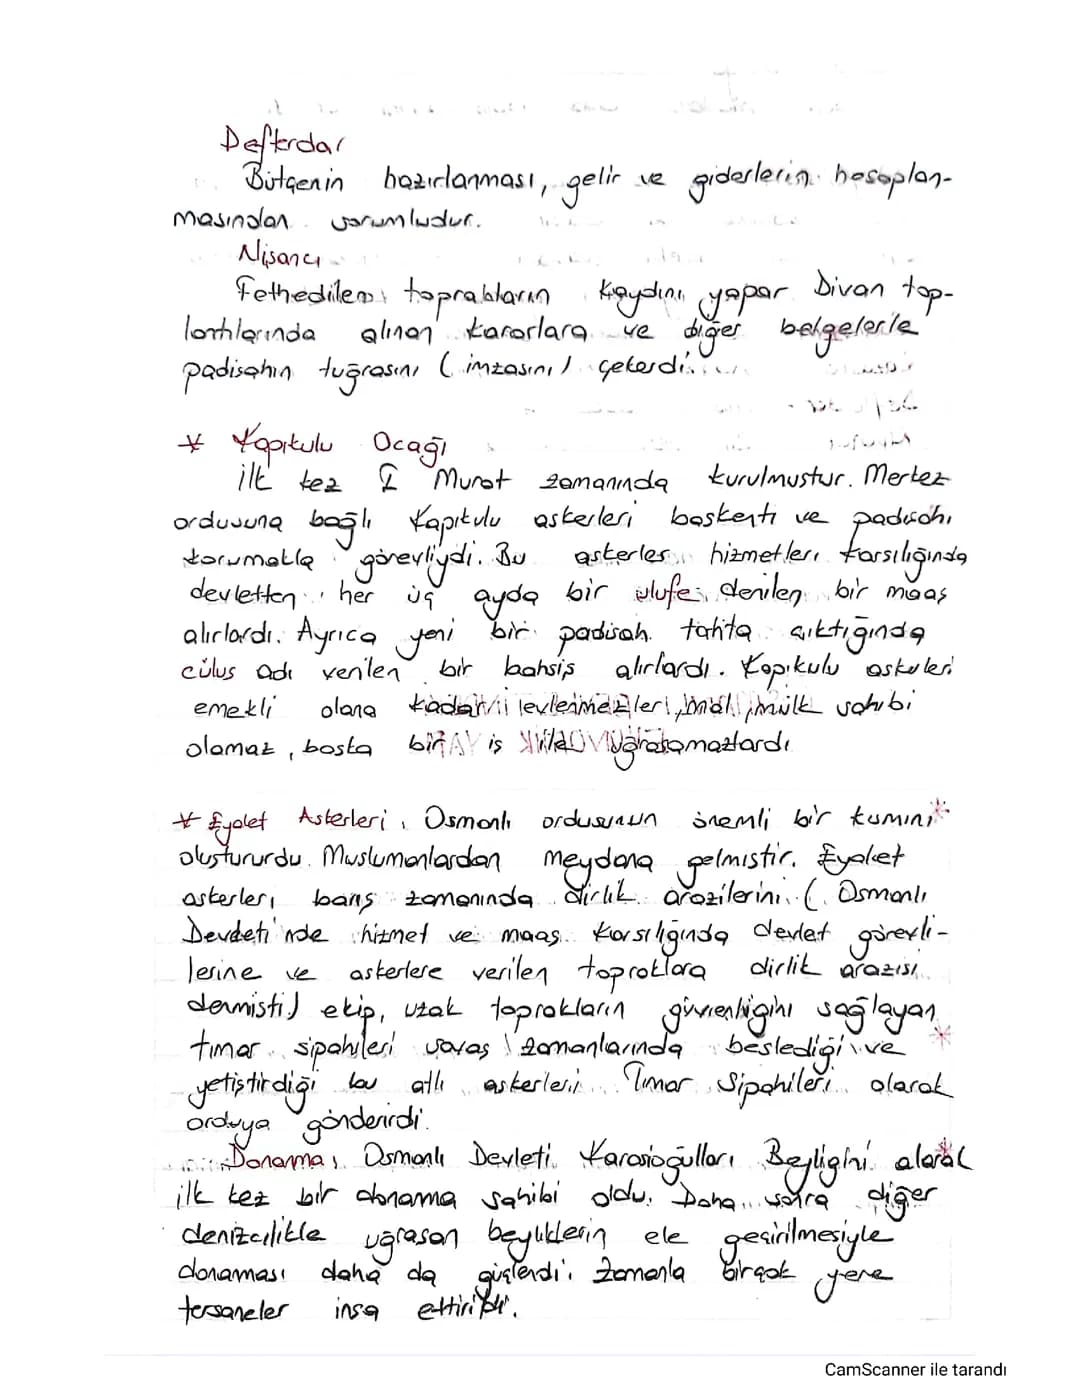 Defterdar
Bütçenin hazırlanması, gelir ve giderlerin hesaplan-
masından sorumludur.
Nişancı
Fethedilen toprakların kaydını yapar. Divan top-
lantılarında alınan kararlara ve diğer belgelerle
padişahın tuğrasını (imzasını) çekerdi.
* Kapıkulu Ocağı
ilk kez I Murat zamanında kurulmustur. Merkez
ordusuna bağlı Kapıkulu askerleri baskenti ve padisahı
korumakla görevliydi. Bu askerler hizmetleri karsılığında
devletten her üç ayda bir ulufe denilen bir maas
alırlardı. Ayrıca yeni bir padisah tahta çıktığında
cülus adı verilen bir bahsiş alırlardı. Kapıkulu askerleri
emekli olana kadar evlenmezler, mal, mülk sahibi
olamaz, baska bir iş ile uğrasamazlardı
* Eyalet Askerleri, Osmanlı ordusunun önemli bir kısmını
olustururdu. Muslumanlardan meydana gelmistir. Eyalet
askerleri barıs zamanında dirlik arazilerini (Osmanlı
Devleti'nde hizmet ve maas karsılığında devlet görevli-
lerine ve askerlere verilen topraklara dirlik arazisi
denmisti) ekip, uzak toprakların güvenliğini sağlayan
tımar sipahileri savas zamanlarında beslediği ve
yetiştirdiği bu atlı askerleri Tımar Sipahileri olarak
orduya gönderirdi.
Donanma, Osmanlı Devleti Karasioğulları Beyliğini alarak
ilk kez bir donanma sahibi oldu. Daha sonra diğer
denizcilikle uğrasan beyliklerin ele geçirilmesiyle
donaması daha da güçlendi. Zamanla birçok yere
tersaneler insa ettirildi.
CamScanner ile tarandı